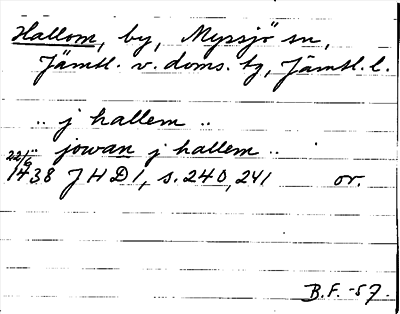 Hallom, by, Myssjö sn,
Jämtl. v. doms. tg, Jämtl. l.
.. j hallem ..
.. jowan j hallem ..
22/6
1438 JHD1, s. 240, 241 or.
B.F. -57.